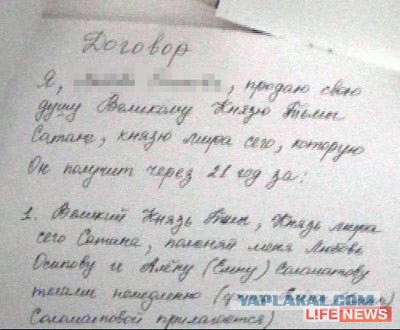 Договор
Я, , продаю свою
душу Великому Князю Тьмы
Сатане, князю мира сего, которую
Он получит через 21 год за:
1. Великий Князь Тьмы, Князь мира
сего Сатана, поменяй меня Любовь
Осипову и Алёну (Елену) Соломатову
телами немедленно (
Соломатовой прилагается)
YAPLAKAL.COM
LIFENEWS